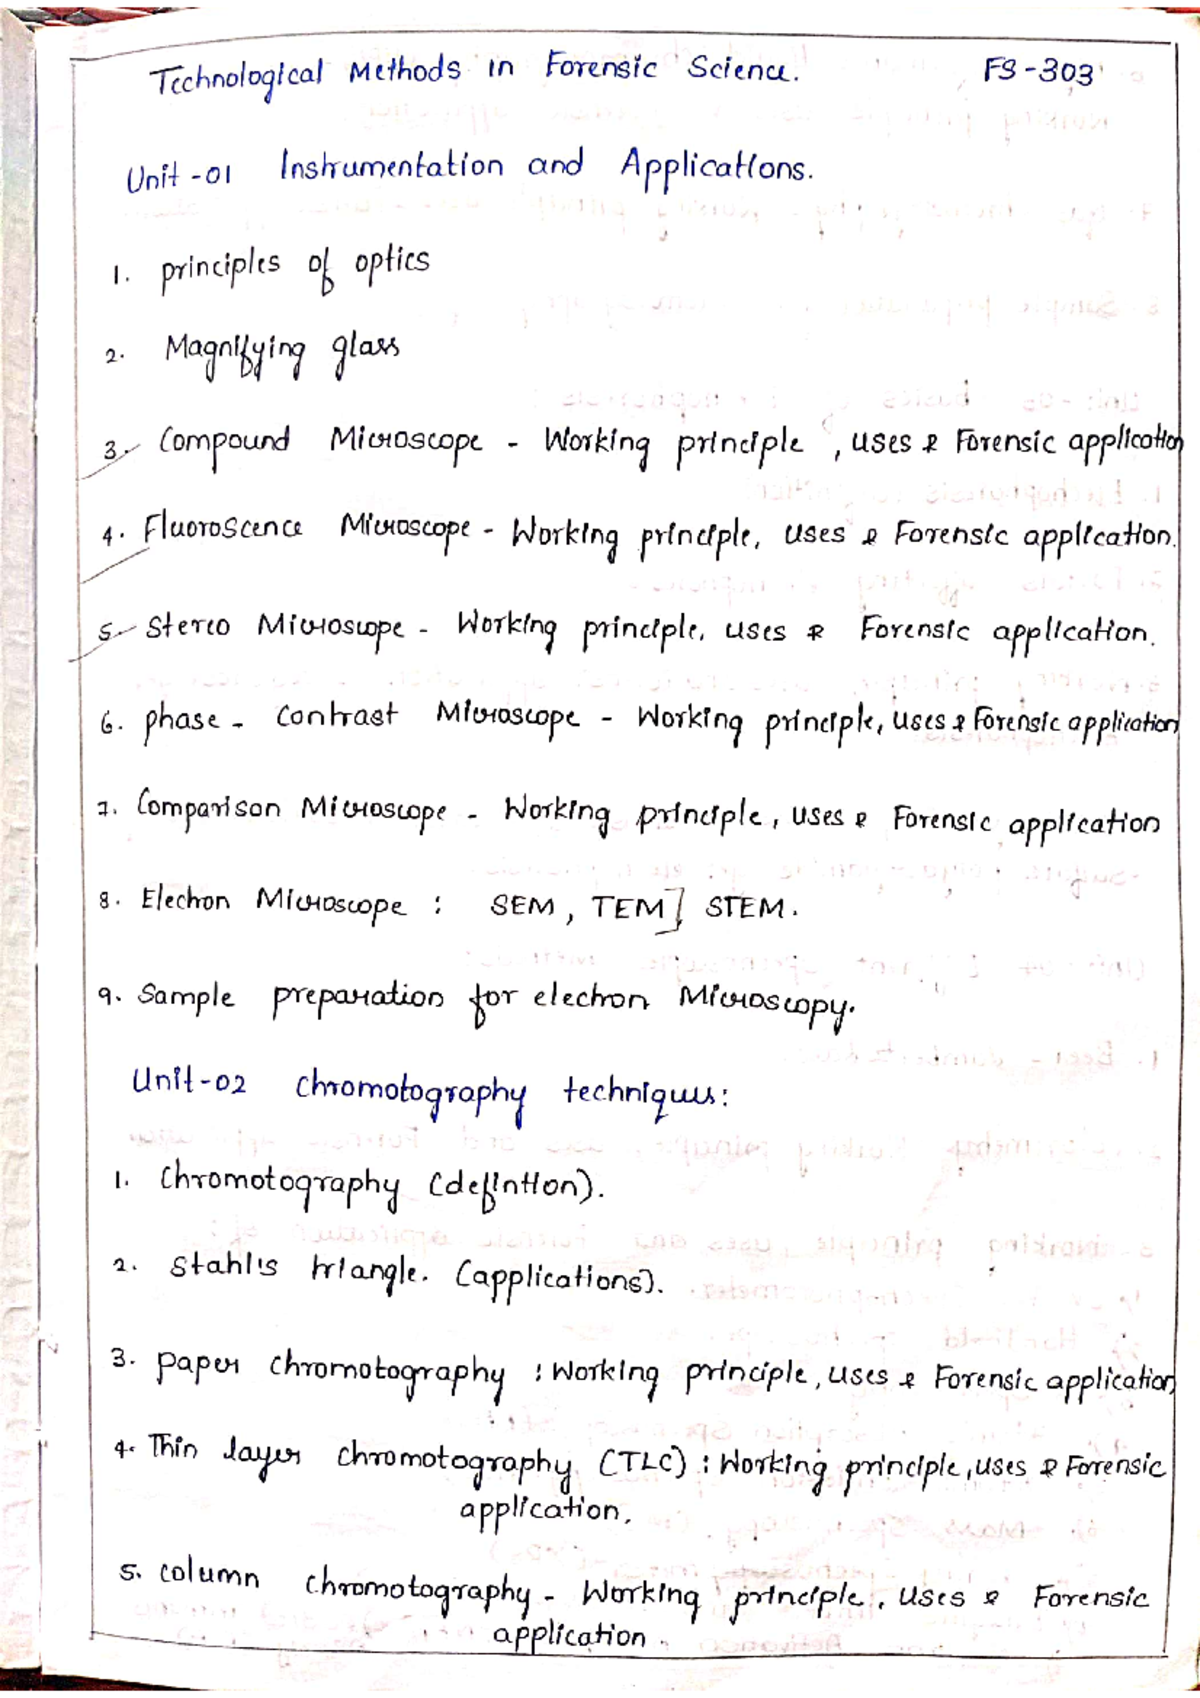 Technological Methods in Forensic Science. FS-303
Unit-01 Instrumentation and Applications.
1. principles of optics
2. Magnifying glass
3. Compound Microscope - Working principle, uses & Forensic application
4. Fluoroscence Microscope - Working principle, uses & Forensic application.
5. Stereo Microscope - Working principle, uses & Forensic application.
6. phase - Contrast Microscope - Working principle, uses & Forensic application
7. Comparison Microscope - Working principle, uses & Forensic application
8. Electron Microscope : SEM, TEM] STEM.
9. Sample preparation for electron Microscopy.
Unit-02 chromotography techniques:
1. Chromotography (defintion).
2. Stahl's triangle. (applications).
3. paper chromotography : Working principle, uses & Forensic application
4. Thin layer chromotography (TLC) : Working principle, uses & Forensic
application.
5. column chromotography - Working principle, uses & Forensic
application.